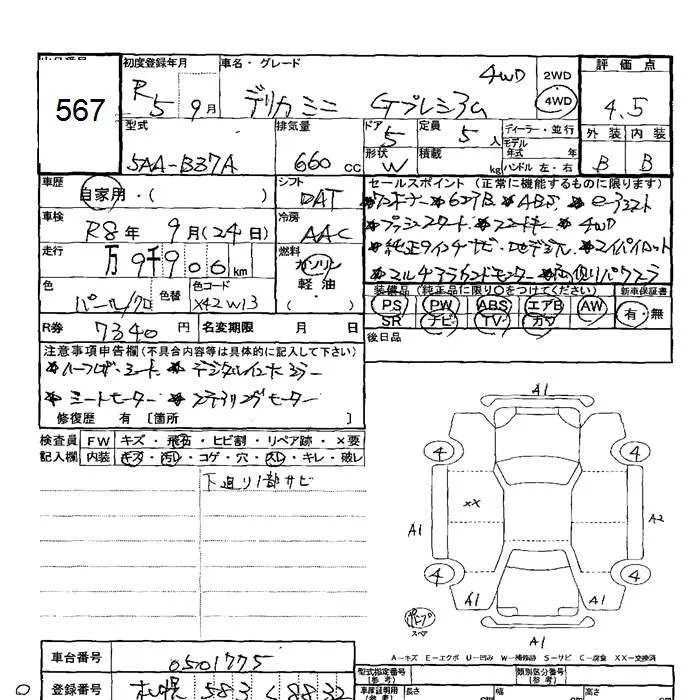 567
初度登録年月
R5 9月
車名・グレード
デリカミニ Gプレミアム 4WD
2WD
4WD
評価点
4.5
外装 内装
B B
型式
5AA-B37A
排気量
660 cc
ドア 5
定員 5 人
ディーラー・並行
モデル年式 年
形状 W
積載 kg
ハンドル 左・右
車歴
自家用・( )
シフト
DAT
セールスポイント (正常に機能するものに限ります)
車検
R8年 9月(24日)
冷房
AAC
走行
万 9千906 km
燃料
ガソリン
軽油
・( )
色
パール/クロ
色替
色コード
X42W13
装備品(純正品に限り○をつけてください)
PS PW ABS エアB AW
SR ナビ TV カワ
新車保証書
有・無
R券 7340 円
名変期限 月 日
後日品
注意事項申告欄(不具合内容等は具体的に記入して下さい)
*ハーフレザーシート *デジタルインナーミラー
*シートヒーター *ステアリングヒーター
修復歴 有 [箇所 ]
検査員記入欄
FW キズ・飛石・ヒビ割・リペア跡・×要
内装 キズ・汚レ・コゲ・穴・スレ・キレ・破レ
下廻り1部サビ
A1
4 4
XX
A1 A2
4 4
A1 A1
A1
スペア
A-キズ E-エクボ U-凹み W-補修跡 S-サビ C-腐食 XX-交換済
車台番号
0501775
登録番号
札幌 583
型式指定番号(参考)
類別区分番号(参考)
車庫証明用(参考)
長さ cm
幅 cm
高さ cm